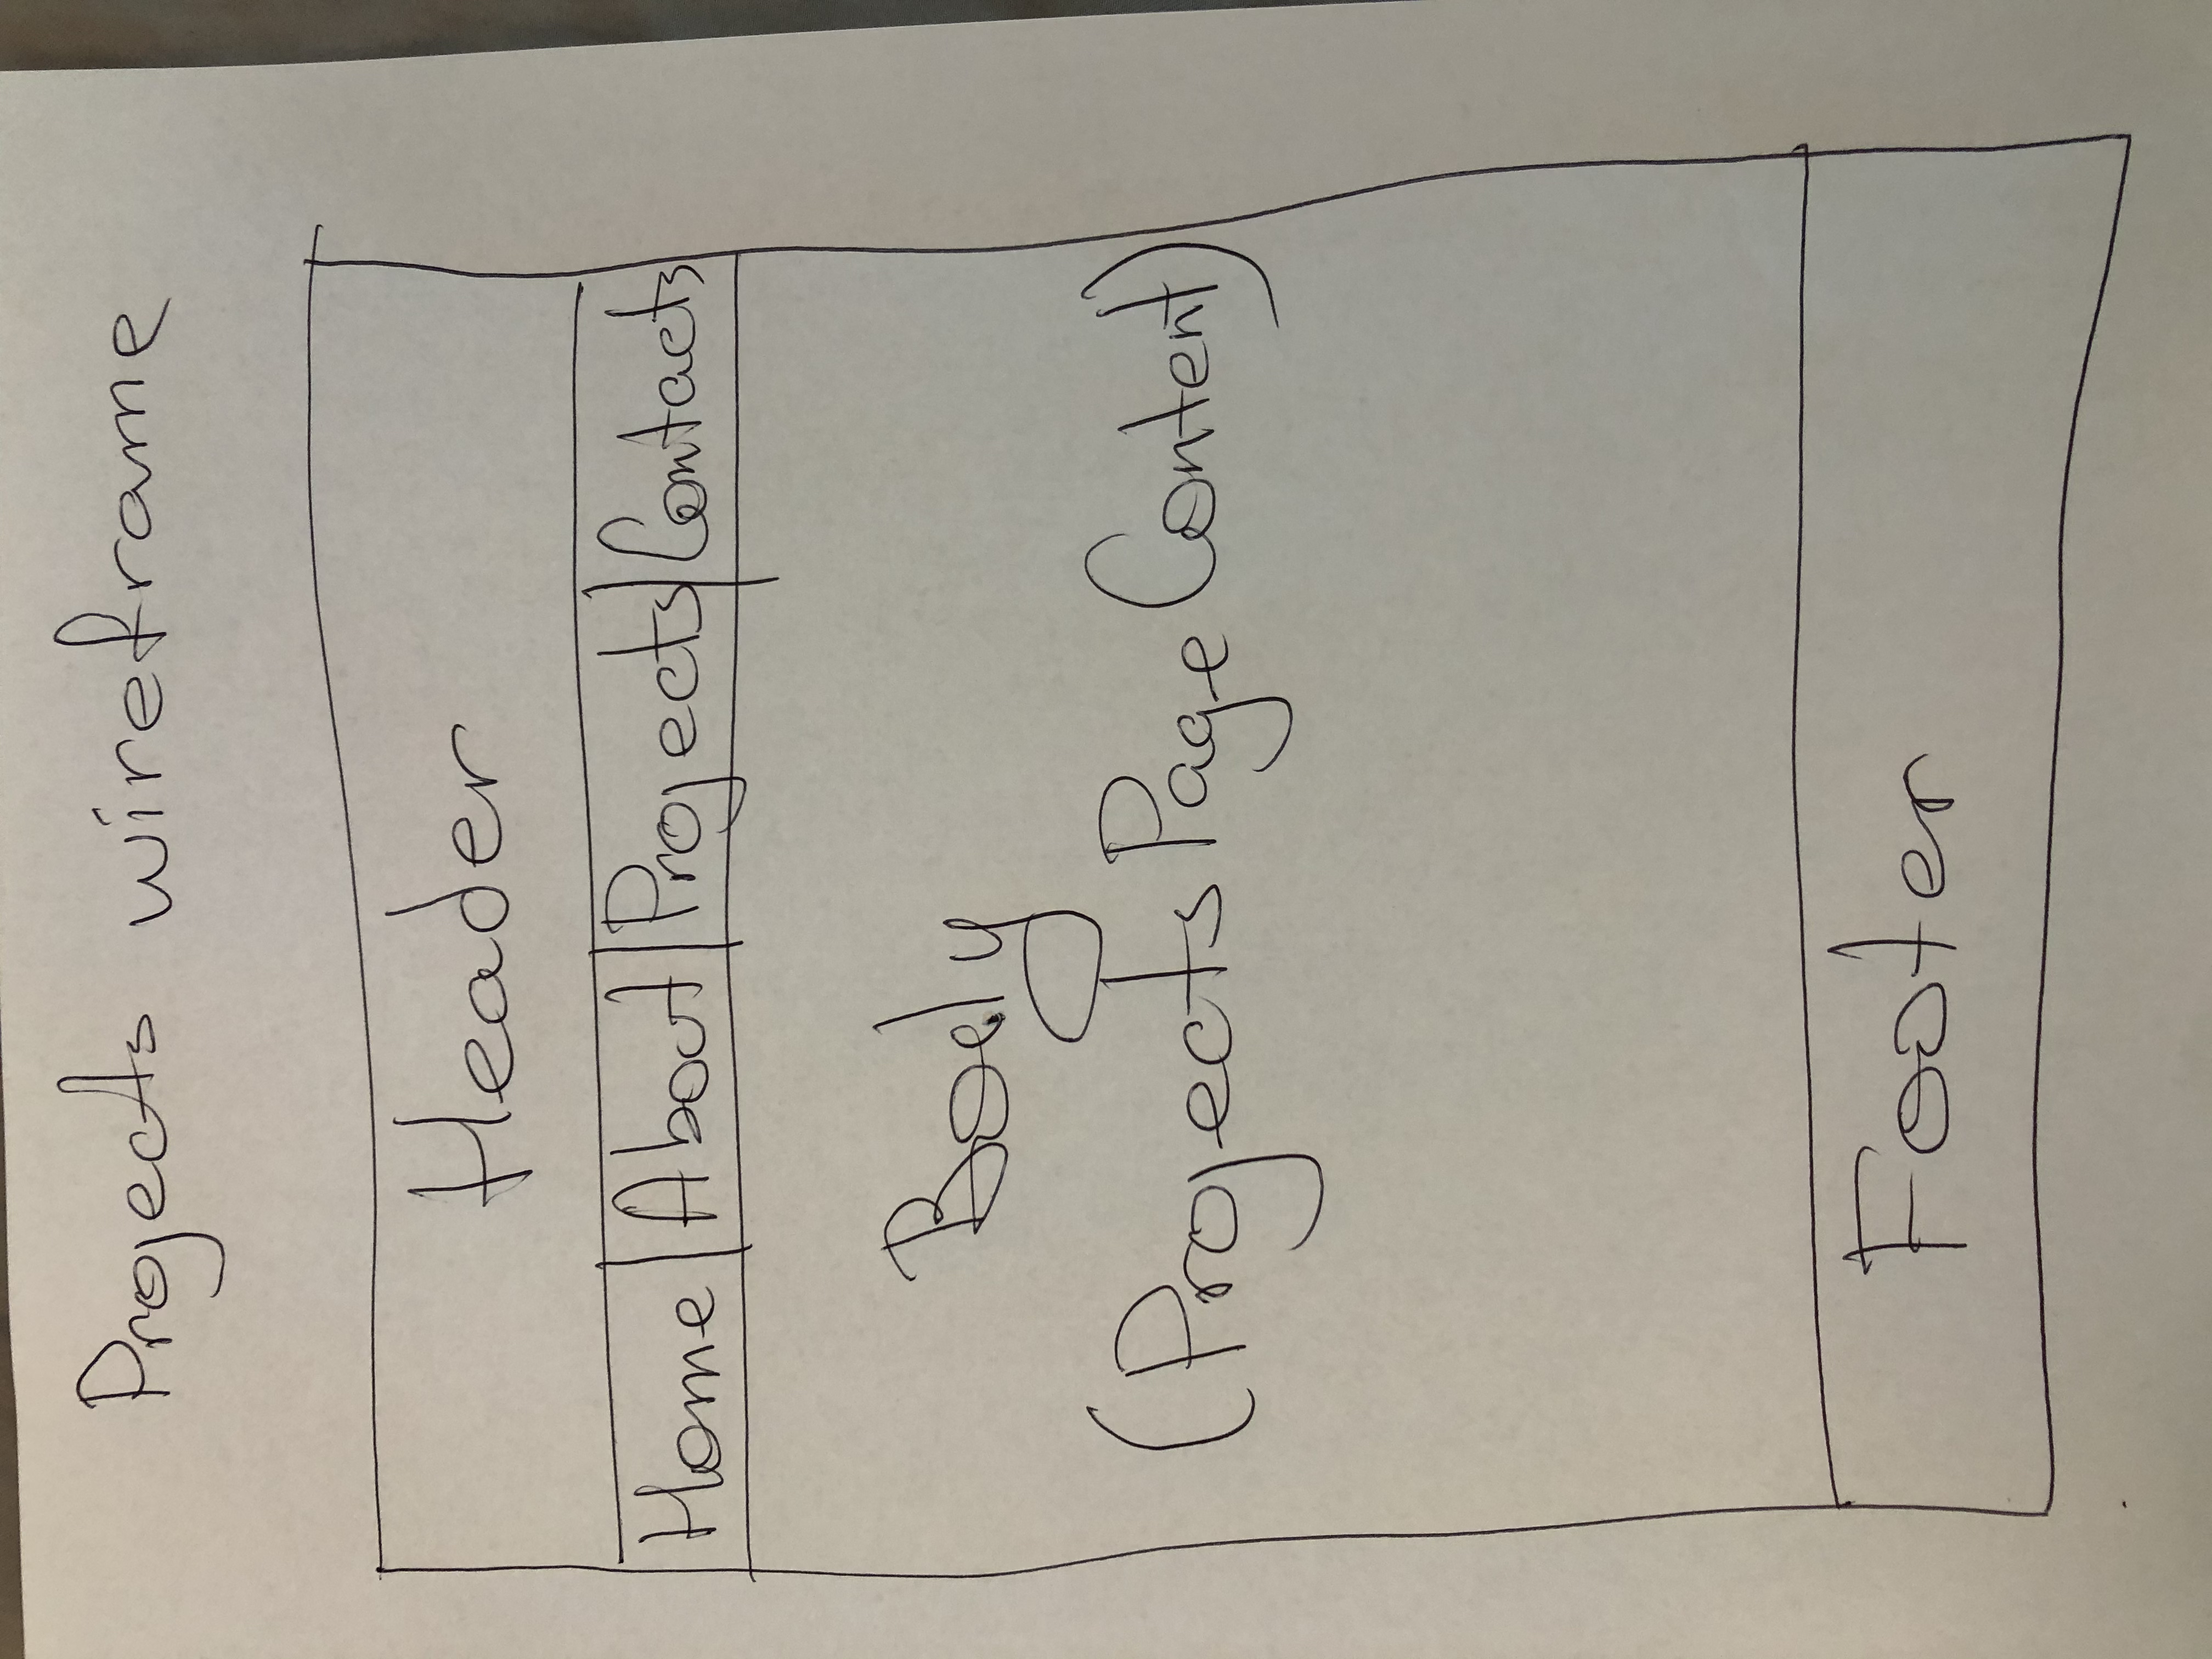 Projects wireframe
Header
Home About Projects Contacts
Body
(Projects Page Content)
Footer